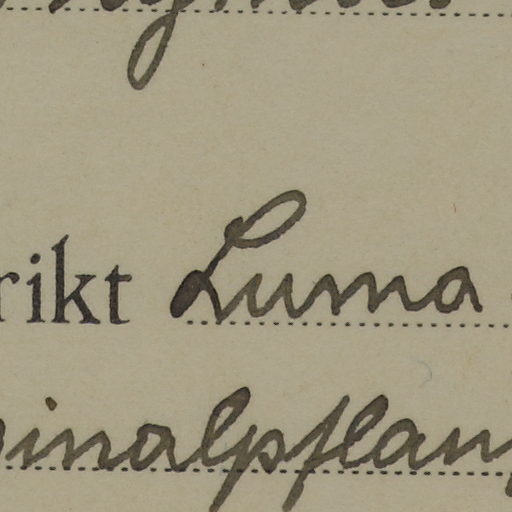 rikt Luma
inalpflan